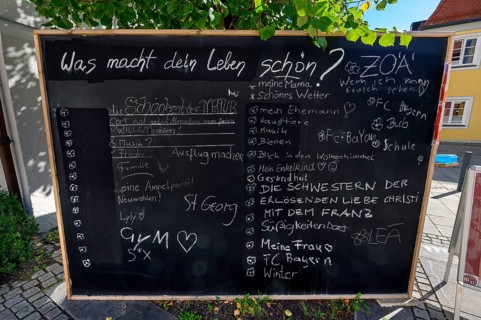 Was macht dein Leben schön?
ZOA
Wenn ich morgens
meine Mama
schönes Wetter
die Schönheit der NATUR
mein Ehemann
Haustiere
Musik
Bienen
Blick in den Wolkenhimmel
Mein Enkelkind
Gesundheit
DIE SCHWESTERN DER
ERLÖSENDEN LIEBE CHRISTI
MIT DEM FRANZ
Süßigkeiten
Meine Frau
FC Bayern
Winter
FC Bayern
Bub
FC Bayern
Schule
LEA
Musik?
Ausflug machen
Familie
eine Ampelpartei!
Neuwahlen!
Lyly
St Georg
GYM
S*x